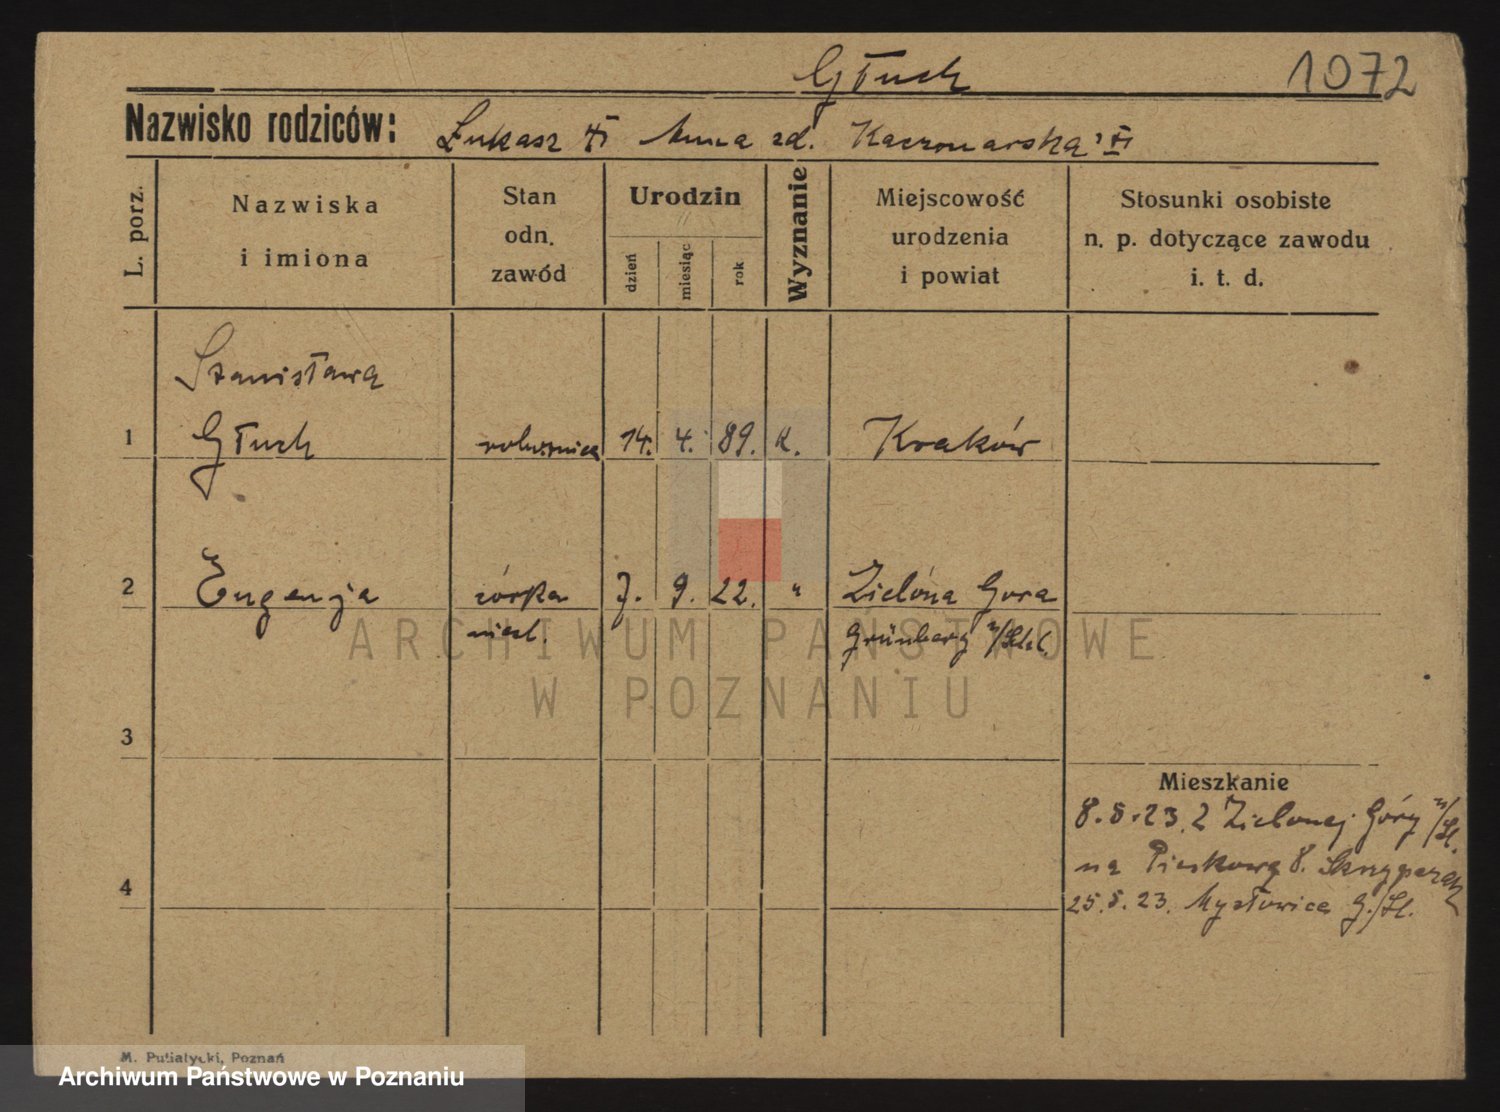 Głuch 1072
Nazwisko rodziców: Łukasz Anna zd. Kaczmarska
L. porz.
Nazwiska
i imiona
Stan
odn.
zawód
Urodzin
dzień
miesiąc
rok
Wyznanie
Miejscowość
urodzenia
i powiat
Stosunki osobiste
n. p. dotyczące zawodu
i. t. d.
Stanisława
1 Głuch robotnica 14. 4. 89. K. Kraków
2 Eugenja córka 7. 9. 22. " Zielóna Gora
Grünberg n/Schl.
ARCHIWUM PAŃSTWOWE
W POZNANIU
3
Mieszkanie
8.5.23. z Zielonej Góry n/Śl.
na Piaskową 8.
4
25.5.23. Mysłowice G./Śl.
M. Putiatycki, Poznań
Archiwum Państwowe w Poznaniu